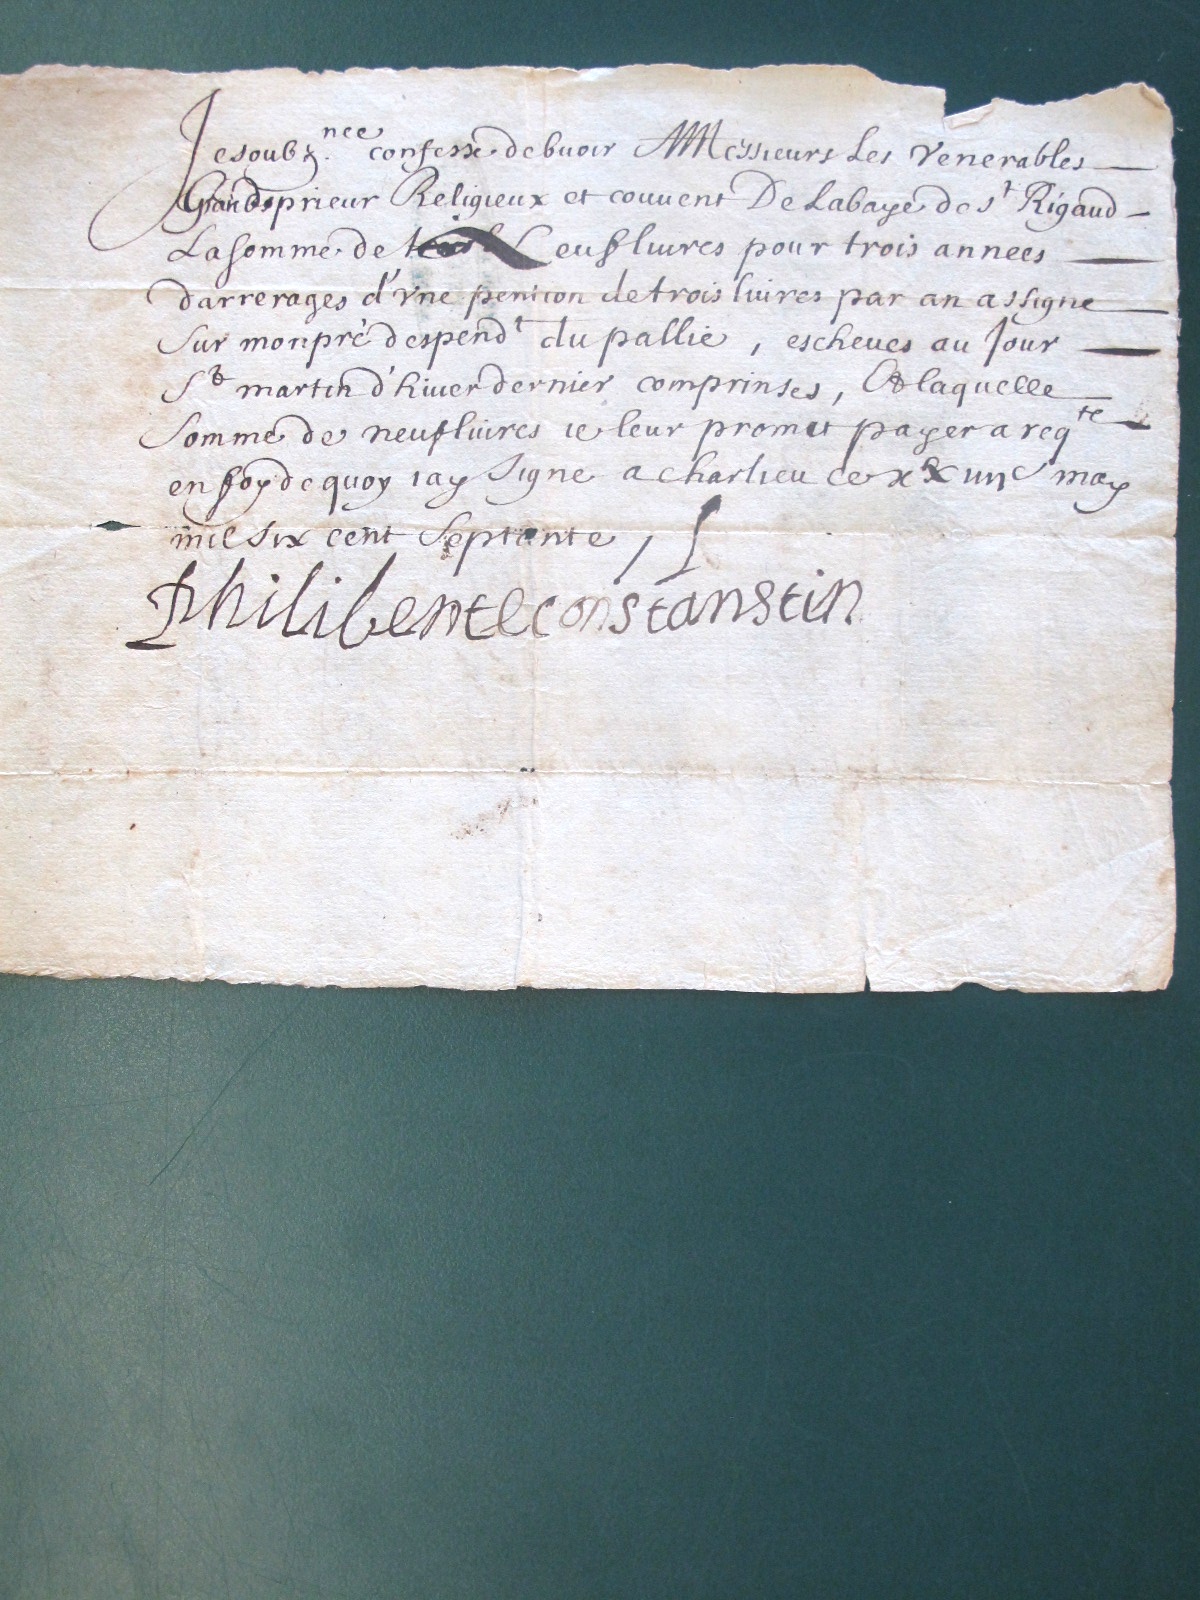 Je soubz.nee confesse debvoir A Messieurs Les Venerables
Grandsprieur Religieux et couvent De Labaye de st Rigaud
La somme de Neuf livres pour trois annees
darrerages d'vne pention de trois livres par an assigne
Sur mon pré despendt du pallie, escheues au Jour
St martin d'hiver dernier comprinses, A laquelle
Somme de neuf livres ie leur promet payer a reqte
en foy de quoy iay Signe a charlieu ce xxiiije may
mil six cent Septante,
philiberte constanstin